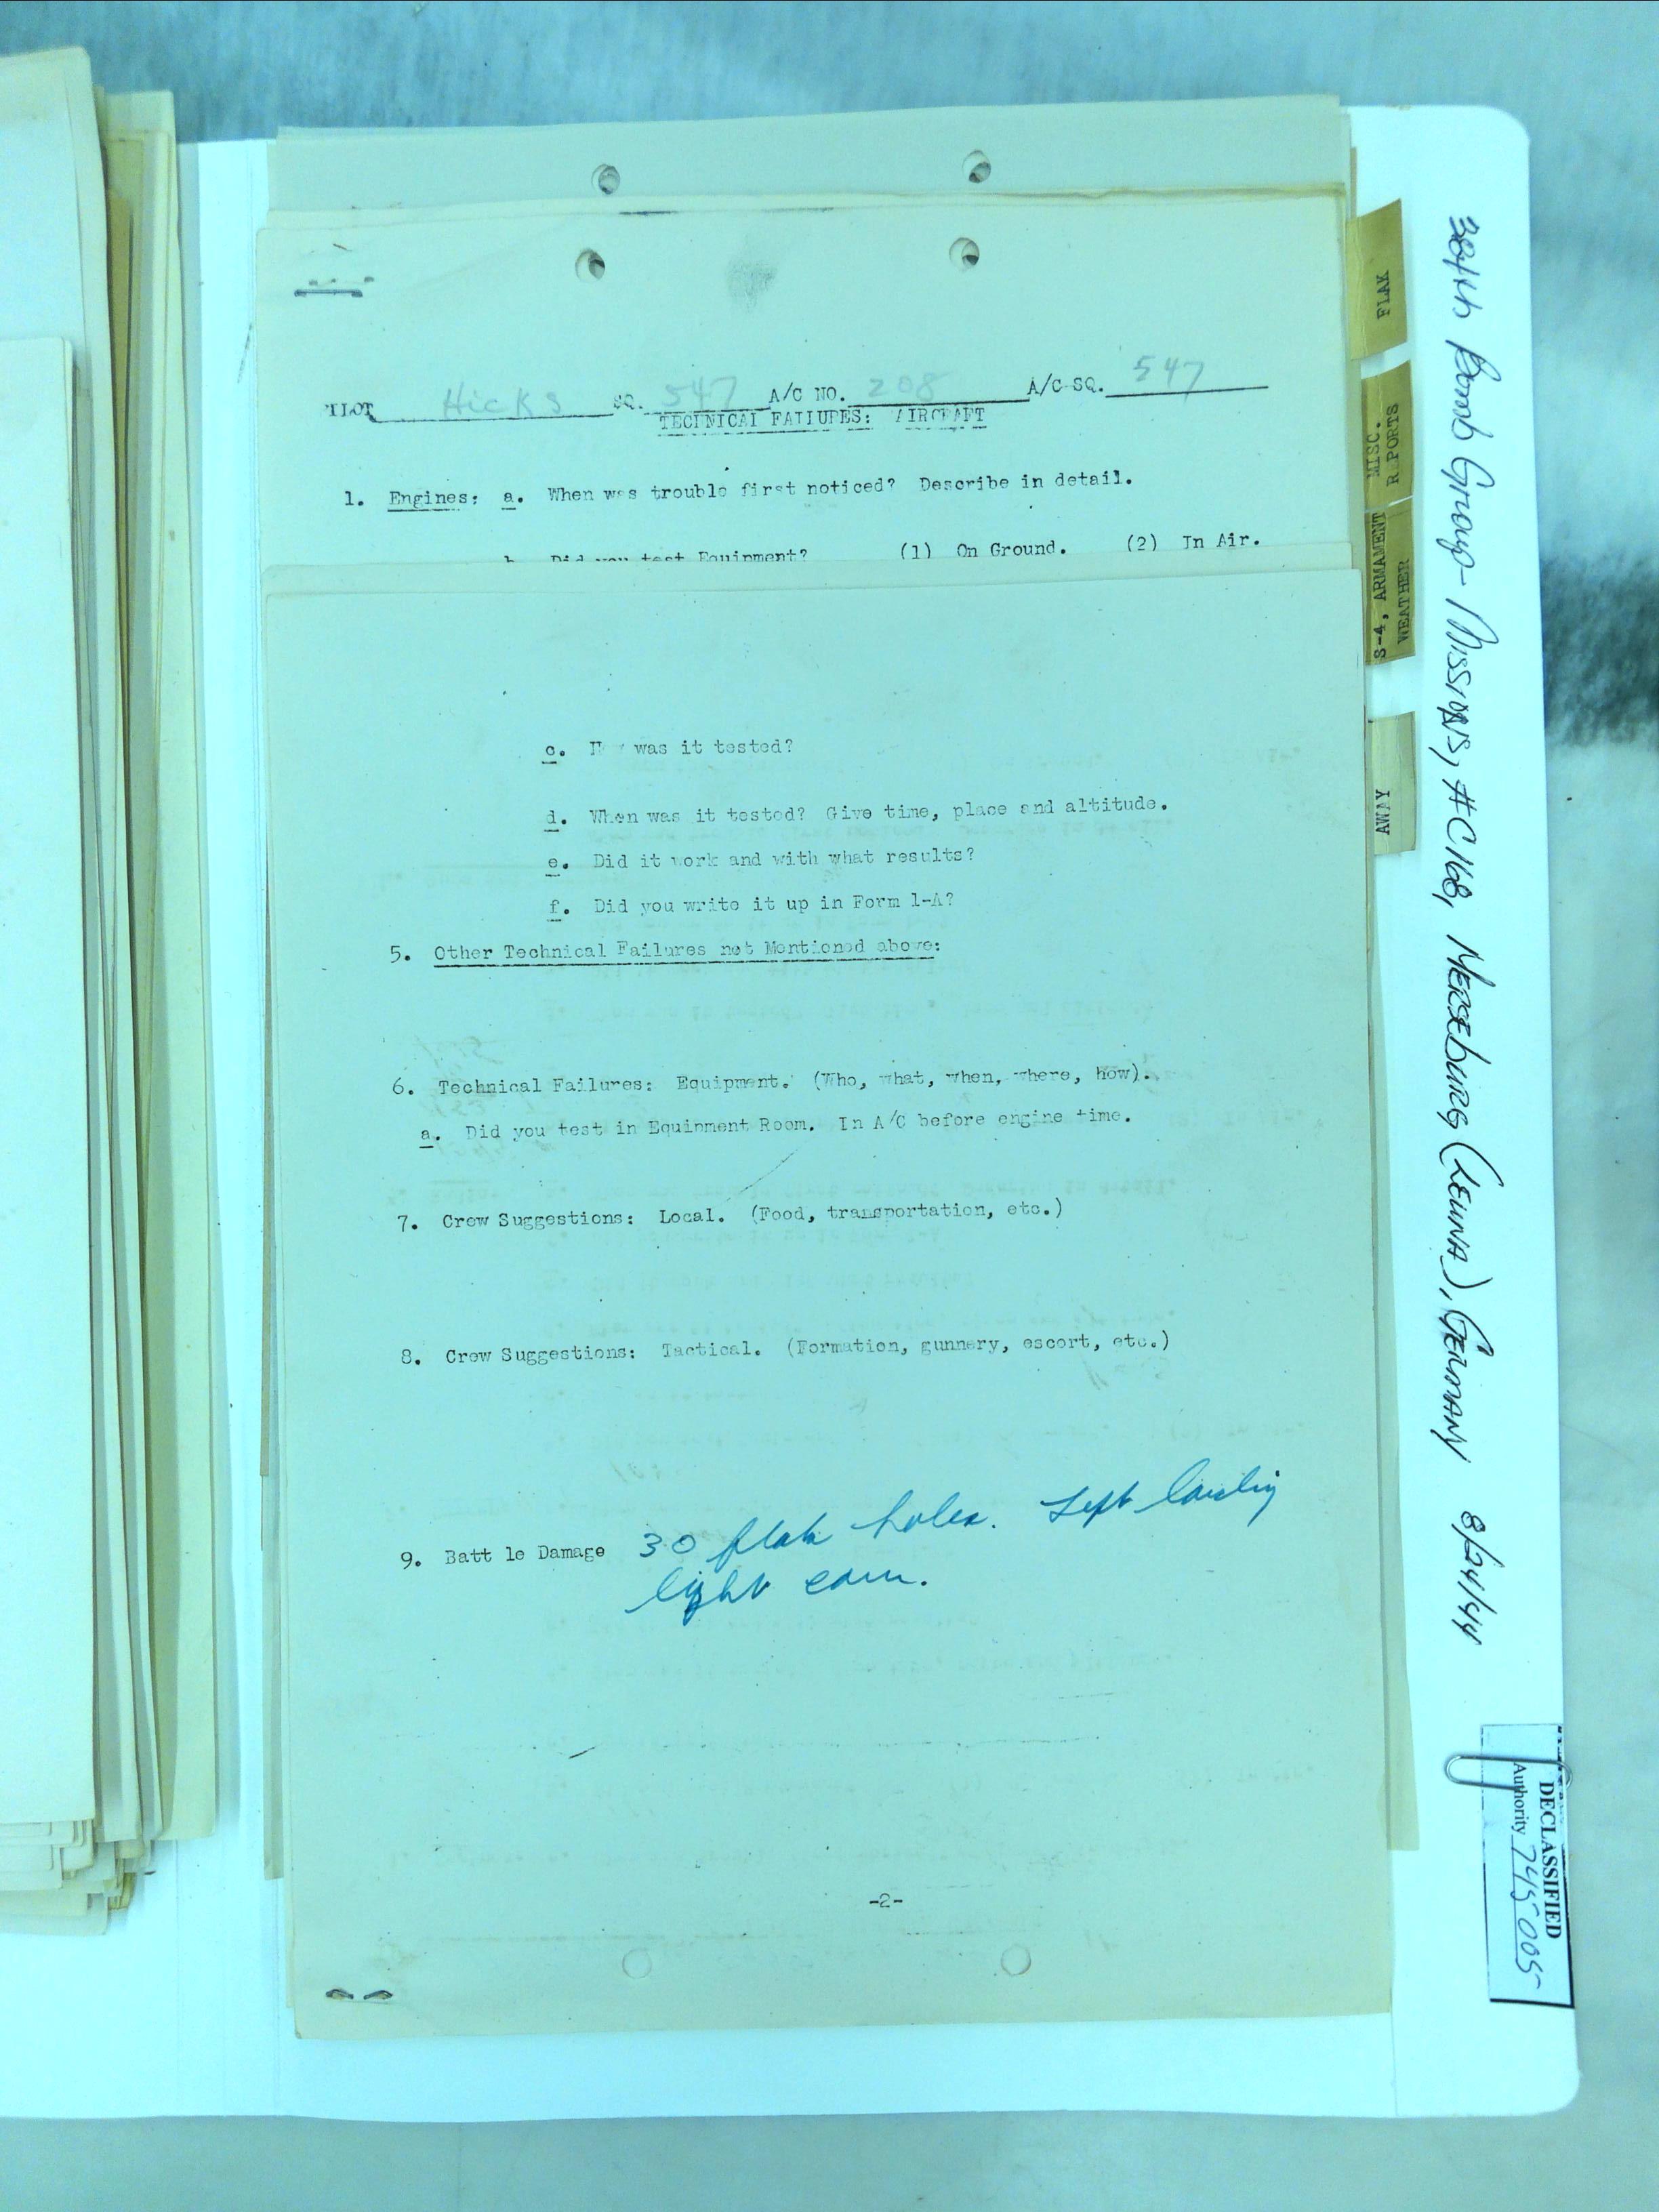 PILOT Hicks SQ. 547 A/C NO. 208 A/C SQ. 547
TECHNICAL FAILURES: AIRCRAFT
1. Engines: a. When was trouble first noticed? Describe in detail.
b. Did you test Equipment? (1) On Ground. (2) In Air.
c. How was it tested?
d. When was it tested? Give time, place and altitude.
e. Did it work and with what results?
f. Did you write it up in Form 1-A?
5. Other Technical Failures not Mentioned above:
6. Technical Failures: Equipment. (Who, what, when, where, how).
a. Did you test in Equipment Room. In A/C before engine time.
7. Crew Suggestions: Local. (Food, transportation, etc.)
8. Crew Suggestions: Tactical. (Formation, gunnery, escort, etc.)
9. Batt le Damage 30 flak holes. Left landing
light
-2-
FLAK
MISC.
R PORTS
S-4, ARMAMENT
WEATHER
AWAY
384th Bomb Group - Missions, #C168, Merseburg (Leuna), Germany 8/24/44
DECLASSIFIED
Authority 745005